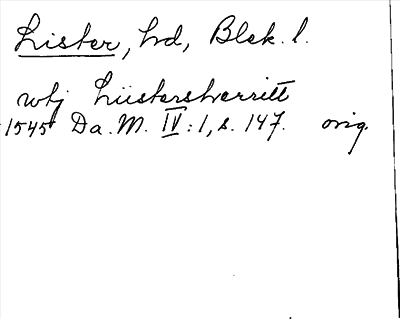 Lister, hd, Blek. l.
utj Lüstershærritt
1545 Da. M. IV:1, s. 147. orig.